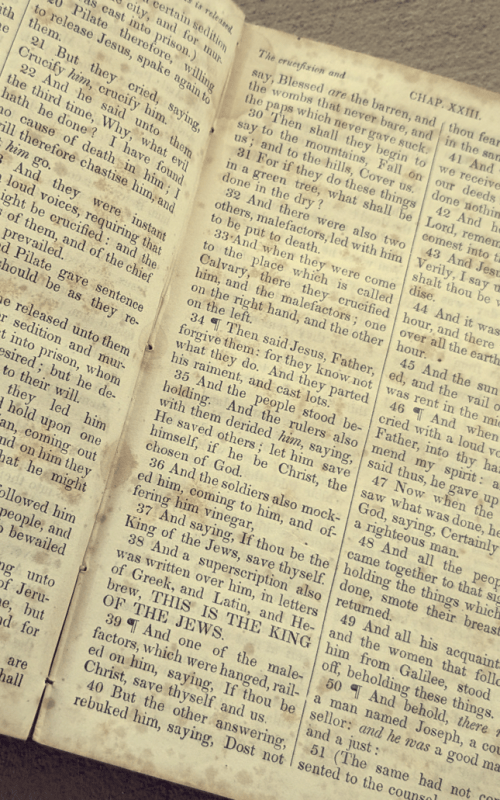 is released.
20
certain sedition
the city, and for mur-
was cast into prison.)
Pilate therefore, willing
to release Jesus, spake again to
them.
21 But they cried, saying,
Crucify him, crucify him.
22 And he said unto them
the third time, Why, what evil
hath he done? I have found
no cause of death in him: I
will therefore chastise him, and
him go.
And they were instant
loud voices, requiring that
might be crucified: and the
of them, and of the chief
prevailed.
And Pilate gave sentence
should be as they re-
he released unto them
sedition and mur-
into prison, whom
desired; but he de-
to their will.
they led him
hold upon one
coming out
and on him they
that he might
followed him
people; and
bewailed
unto
of Jeru-
me, but
and for
are
shall
The crucifixion and
say, Blessed are the barren, and
the wombs that never bare, and
the paps which never gave suck.
30 Then shall they begin to
say to the mountains, Fall on
us; and to the hills, Cover us.
31 For if they do these things
in a green tree, what shall be
done in the dry?
32 And there were also two
others, malefactors, led with him
to be put to death.
33 And when they were come
to the place which is called
Calvary, there they crucified
him, and the malefactors; one
on the right hand, and the other
on the left.
34 ¶ Then said Jesus, Father,
forgive them: for they know not
what they do. And they parted
his raiment, and cast lots.
35 And the people stood be-
holding. And the rulers also
with them derided him, saying,
He saved others; let him save
himself, if he be Christ, the
chosen of God.
36 And the soldiers also mock-
ed him, coming to him, and of-
fering him vinegar,
37 And saying, If thou be the
King of the Jews, save thyself.
38 And a superscription also
was written over him, in letters
of Greek, and Latin, and He-
brew, THIS IS THE KING
OF THE JEWS.
39 ¶ And one of the male-
factors, which were hanged, rail-
ed on him, saying, If thou be
Christ, save thyself and us.
40 But the other answering,
rebuked him, saying, Dost not
CHAP. XXIII.
thou fear
in the sam
41 And
we receive
our deeds
done nothin
42 And he
Lord, remem
comest into t
43 And Jes
Verily, I say u
shalt thou be
dise.
44 And it was
hour, and there
over all the earth
hour.
45 And the sun
ed, and the vail
was rent in the mi
46 ¶ And when
cried with a loud vo
Father, into thy ha
mend my spirit: a
said thus, he gave up
47 Now when the
saw what was done, he
God, saying, Certainly
a righteous man.
48 And all the peop
came together to that si
holding the things which
done, smote their breas
returned.
49 And all his acquain
and the women that follo
him from Galilee, stood
off, beholding these things.
50 ¶ And behold, there
a man named Joseph, a co
sellor; and he was a good ma
and a just:
51 (The same had not con
sented to the counsel